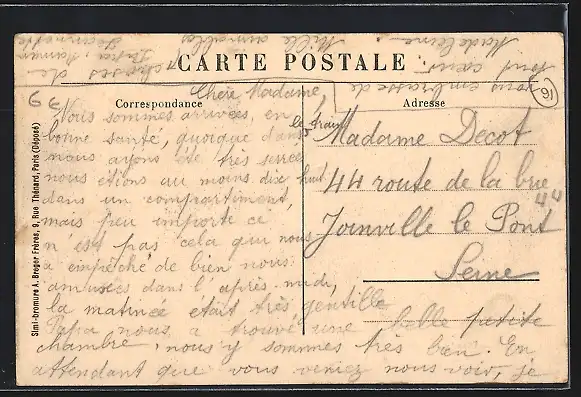 CARTE POSTALE
Correspondance
Adresse
Chère Madame,
Nous sommes arrivées, en
bonne santé, quoique dans le train
nous ayons été très serrées
nous étions au moins dix huit
dans un compartiment,
mais peu importe ce
n est pas cela qui nous
a empêché de bien nous
amusées dans l'après-midi,
la matinée était très gentille
Papa nous a trouvé une belle petite
chambre, nous y sommes très bien. En
attendant que vous veniez nous voir, je
vous embrasse de
tout cœur.
Madeleine.
Mille amicales
caresses de
Jeannette
Madame Decot
44 route de la brie
44
Joinville le Pont
Seine
99
16
Simi-bromure A. Breger Frères, 9, Rue Thénard, Paris (Déposé)